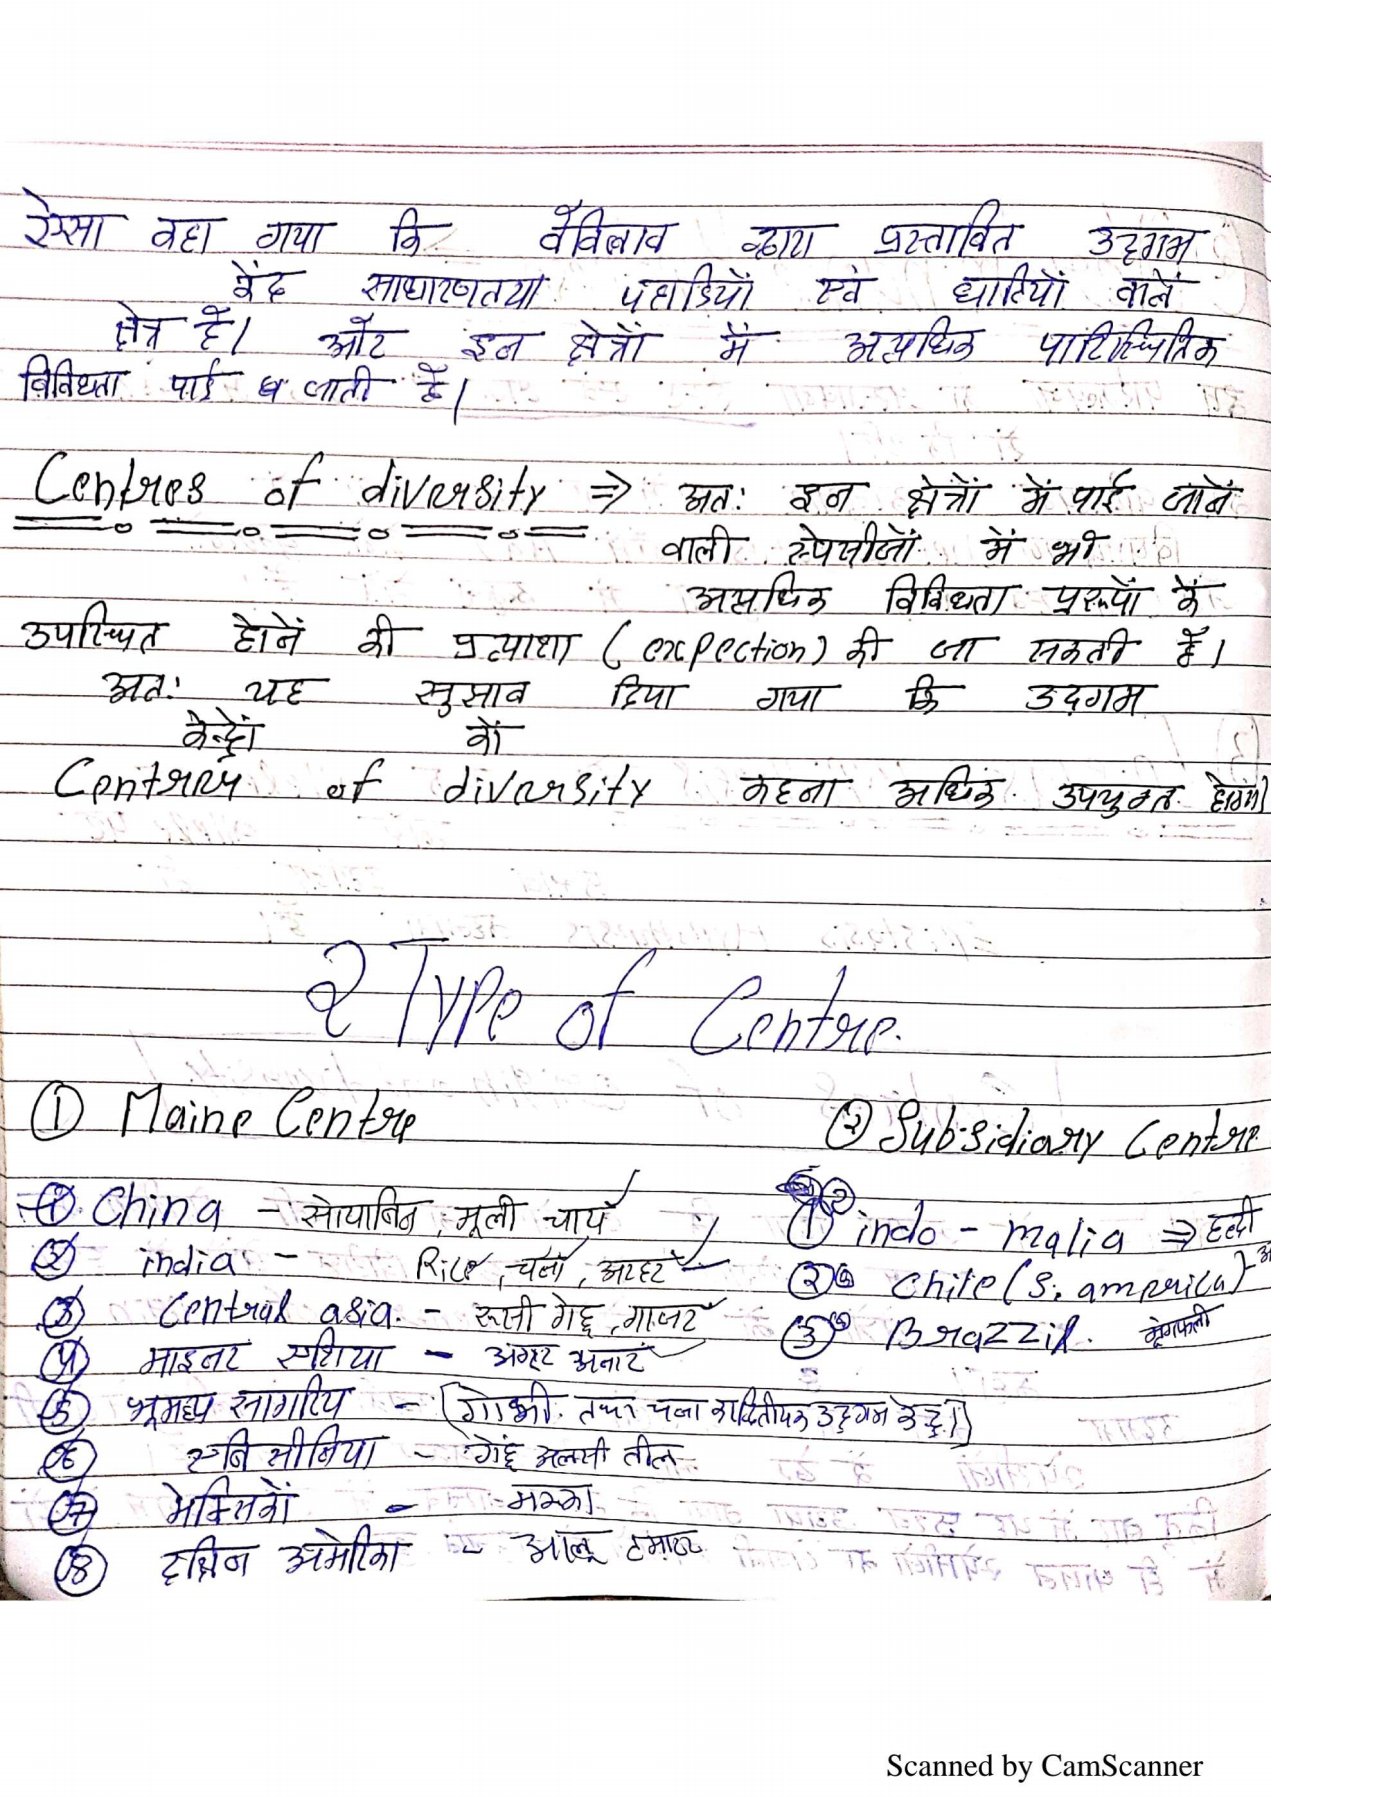 ऐसा कहा गया कि वैविलाव द्वारा प्रस्तावित उदगम
केंद साधारणतया पहाडियों एवं घाटियों वाले
क्षेत्र हैं। और इन क्षेत्रों में अत्यधिक पारिस्थितिक
विविधता पाई जाती है।
Centres of diversity ⇒ अतः इन क्षेत्रों में पाई जानें
वाली स्पेसीजों में भी
अत्यधिक विविधता प्ररूपों के
उपस्थित होनें की प्रत्याशा (expection) की जा सकती हैं।
अतः यह सुझाव दिया गया कि उदगम
केन्द्रों कों
Centres of diversity कहना अधिक उपयुक्त होगा।
2 Type of Centre.
① Maine Centre
② Subsidiary Centre
① China - सोयाबिन, मूली चाय
② india - Rice, चना, अरहर
③ Central asia. - रूसी गेहू, गाजर
④ माइनर एशिया - अंगूर अनार
⑤ भूमध्य सागरिय - (गोभी. तथा चना का द्वितीयक उदगम केन्द्र।)
⑥ एबिसीनिया - गेहूं अलसी तील
⑦ मेक्सिकों - मक्का
⑧ दक्षिन अमेरिका - आलू टमाटर
① indo - malia ⇒ हल्दी
② Chile (S. america) -
③ Brazzil. मूंगफली
Scanned by CamScanner